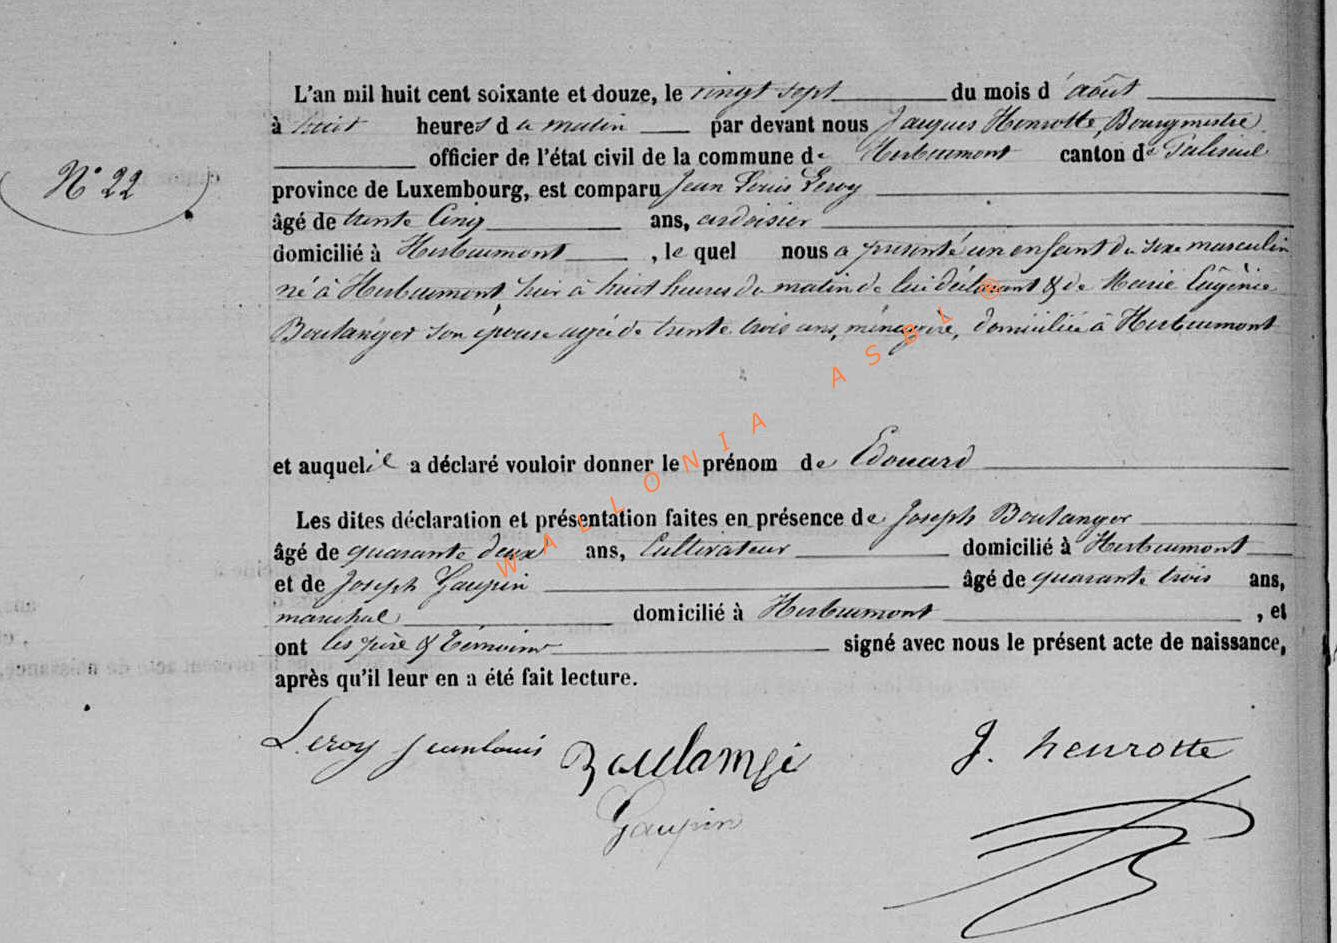 L'an mil huit cent soixante et douze, le vingt sept du mois d'août
à huit heures du matin par devant nous Jacques Henrotte, Bourgmestre
officier de l'état civil de la commune de Herbeumont canton de Paliseul
N° 22
province de Luxembourg, est comparu Jean Louis Leroy
âgé de trente cinq ans, ardoisier
domicilié à Herbeumont, le quel nous a présenté un enfant du sexe masculin
né à Herbeumont, hier à huit heures du matin de lui déclarant & de Marie Eugénie
Boulanger son épouse agée de trente trois ans, ménagère, domiciliée à Herbeumont
et auquel il a déclaré vouloir donner le prénom de Edouard
Les dites déclaration et présentation faites en présence de Joseph Boulanger
âgé de quarante deux ans, Cultivateur domicilié à Herbeumont
et de Joseph Gaupin âgé de quarante trois ans,
maréchal domicilié à Herbeumont, et
ont les père & témoins signé avec nous le présent acte de naissance,
après qu'il leur en a été fait lecture.
Leroy jeanlouis Boulange J. henrotte
Gaupin
WALLONIA ASBL ®